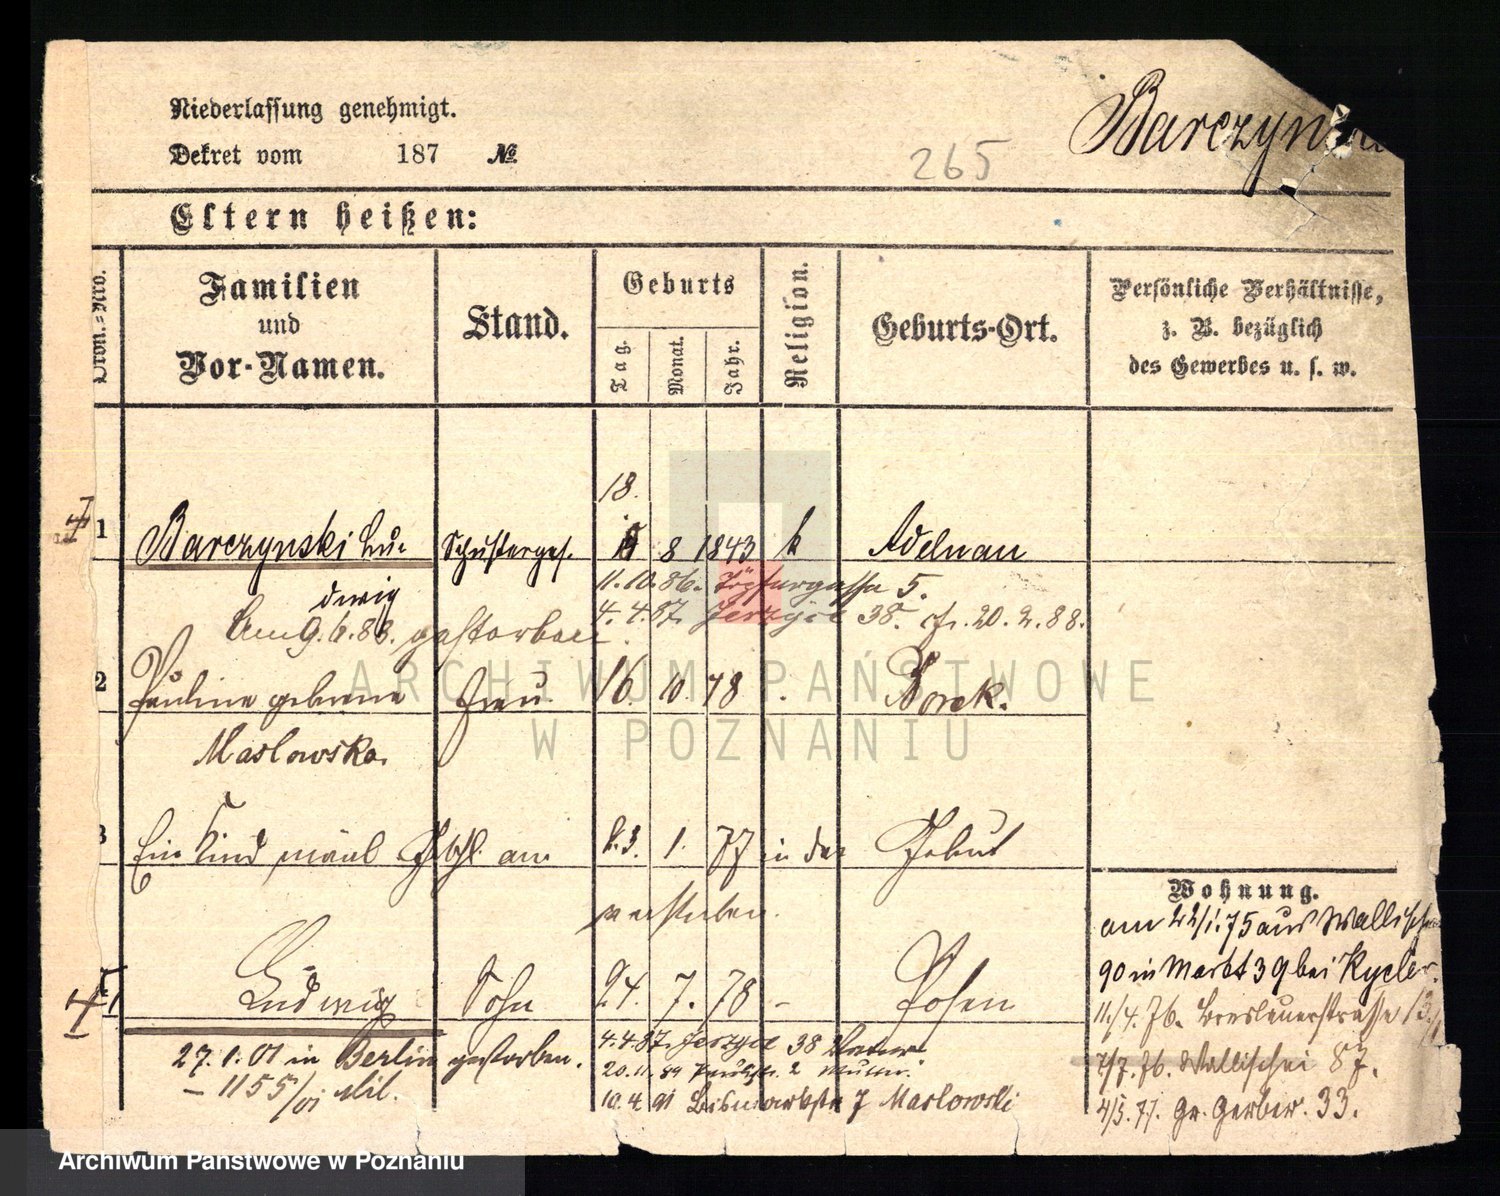 Niederlassung genehmigt.
Dekret vom 187 №
265
Barczynski
Eltern heißen:
Ordn.-Nro.
Familien
und
Vor-Namen.
Stand.
Geburts
Tag.
Monat.
Jahr.
Religion.
Geburts-Ort.
Persönliche Verhältnisse,
z. B. bezüglich
des Gewerbes u. s. w.
18.
1 Barczynski Lu- Schusterges. 8 1843 k Adelnau
dwig
11.10.86. Töpfergasse 5.
4.4.87. Jerzyce 38. 20.2.88.
Am 9.6.88. gestorben
2 Pauline geborene Frau 16. 10 78 . Borek.
Maslowska.
3 Ein Kind männl. am 23. 1. 77 in der Gebut
verstorben.
4 Ludwig Sohn 24. 7. 78 - Posen
27.1.01 in Berlin gestorben.
– 1155/01 Mil.
4.4.87. Jerzyce 38
20.11.89 2 Mutter
10.4.91 Bismarckstr 7 Maslowski
Wohnung.
am 22/1.75 aus Wallischei
90 in Markt 39 bei Rycler.
11/4.76. Breslauerstrasse 13
7/7.76. Wallischei 87.
4/5.77. Gr. Gerber. 33.
ARCHIWUM PAŃSTWOWE
W POZNANIU
Archiwum Państwowe w Poznaniu